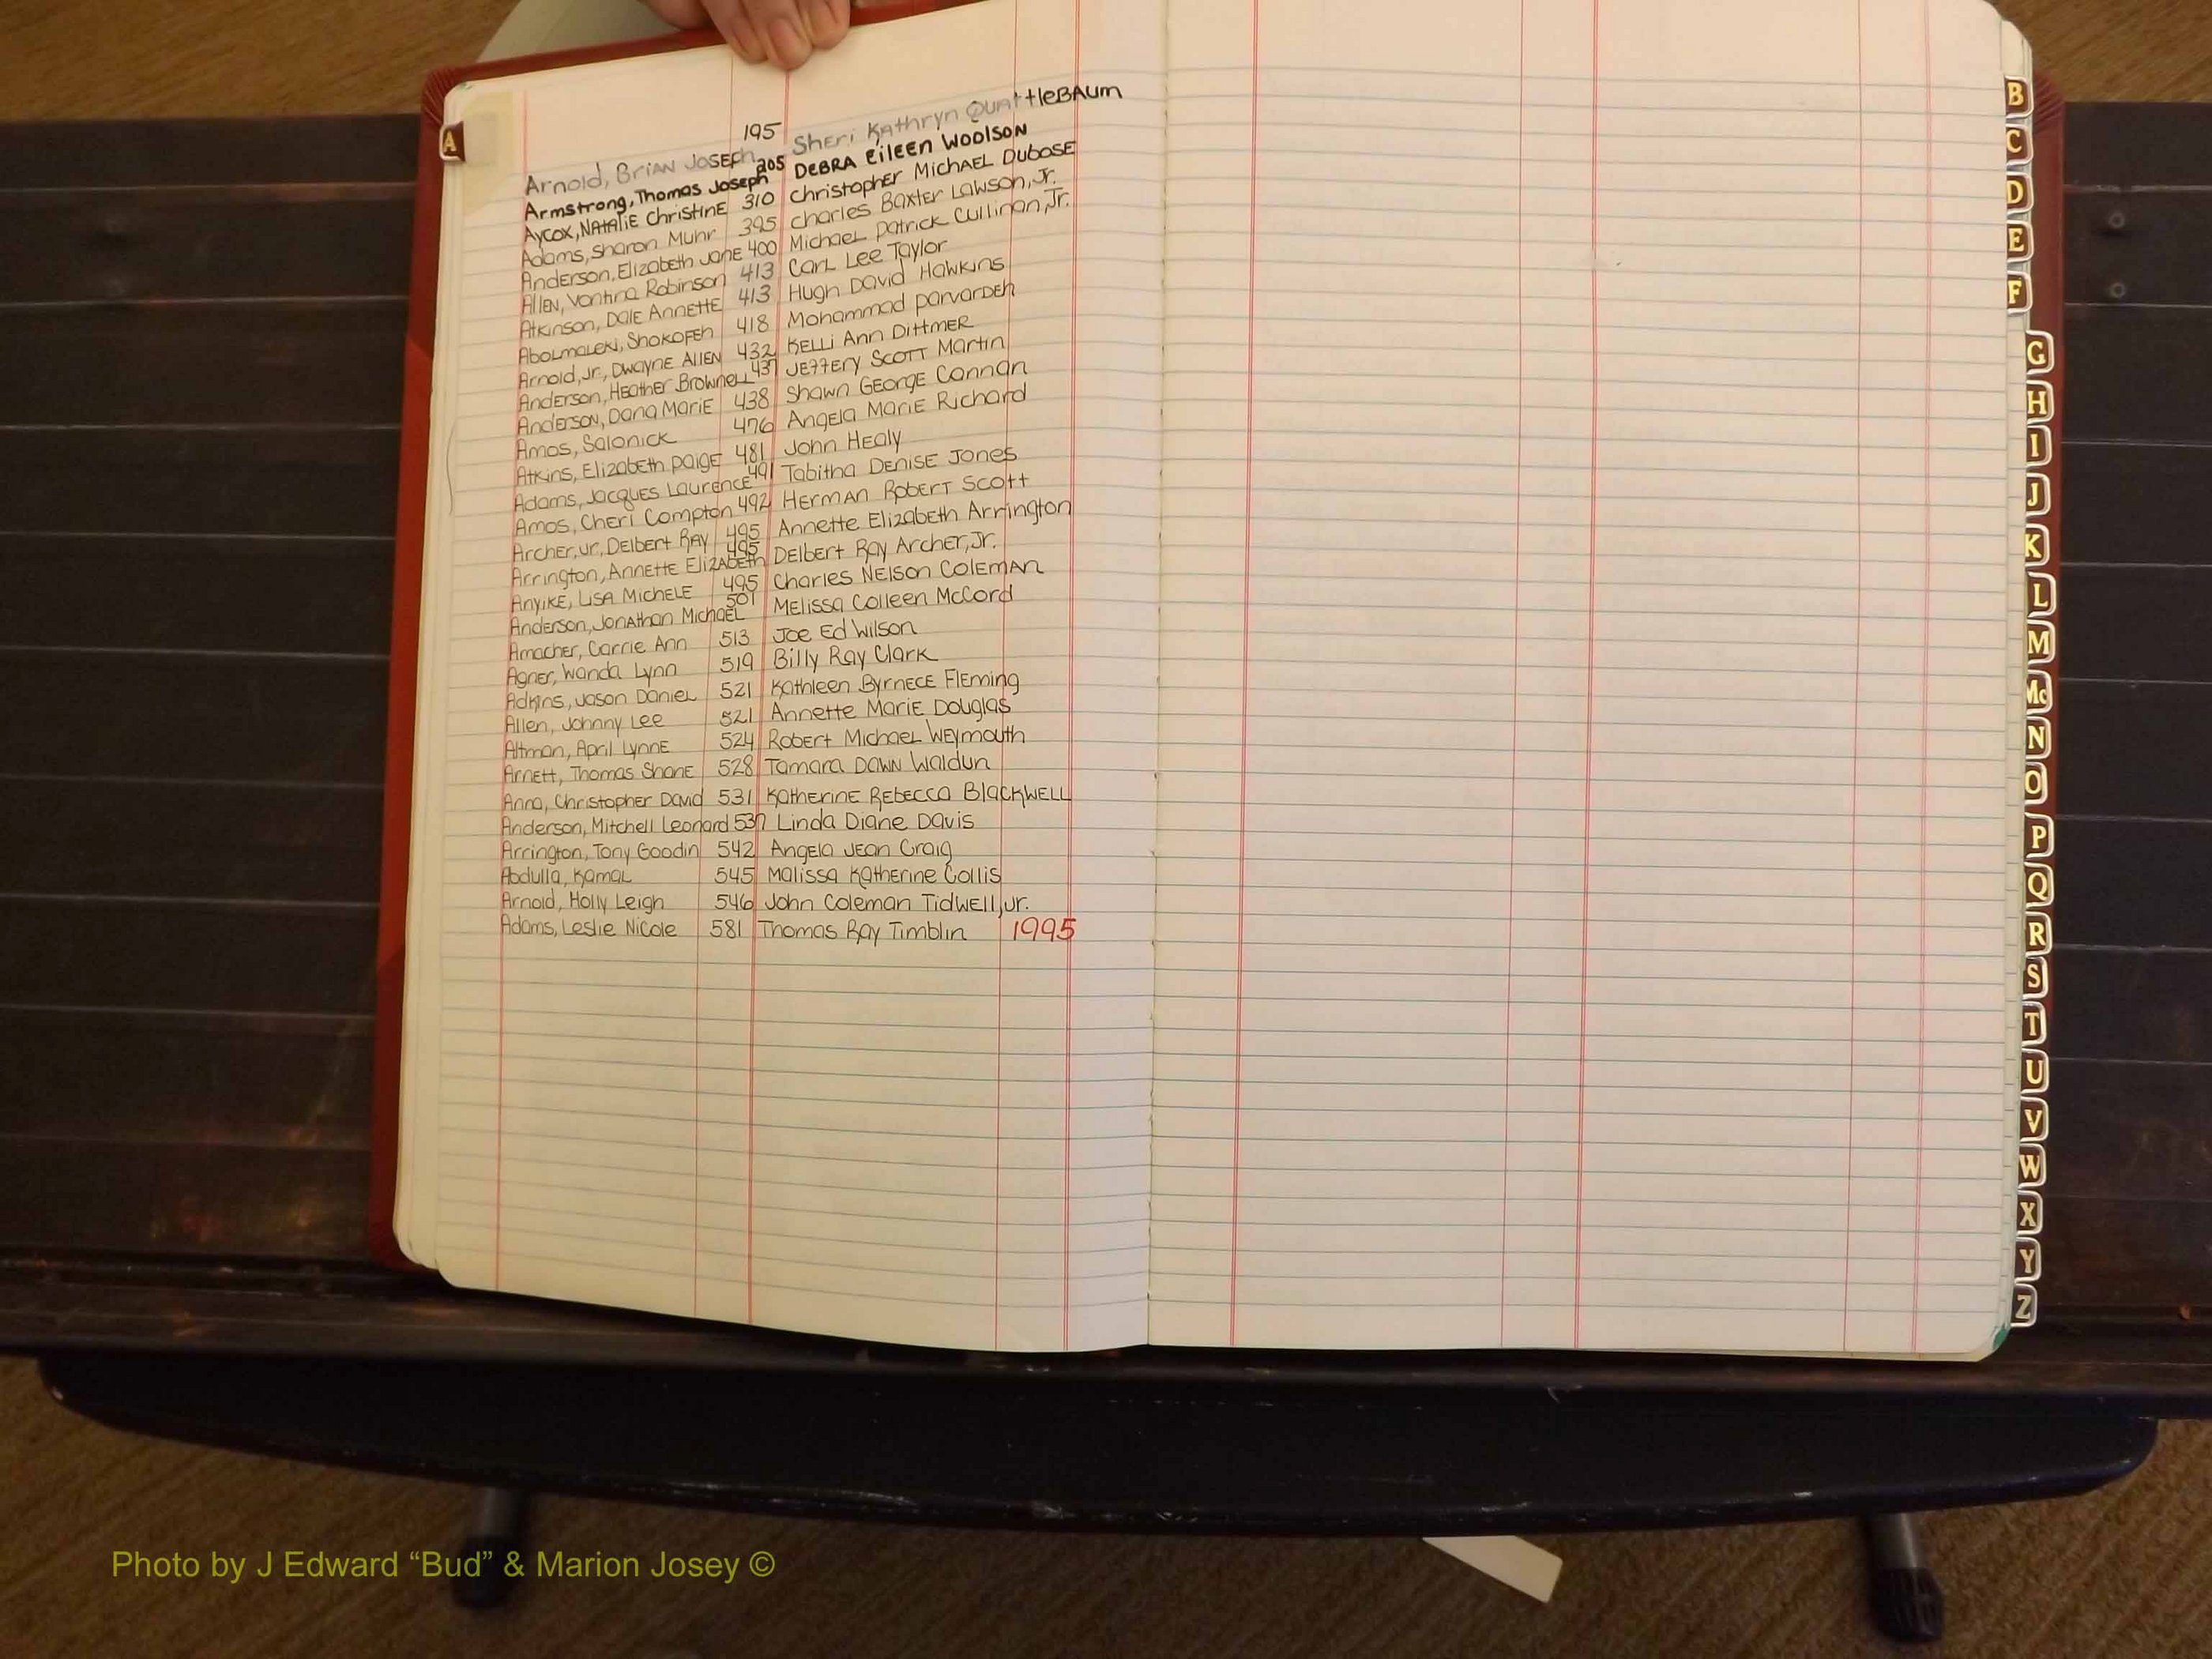 A
Arnold, Brian Joseph 195 Sheri Kathryn QuattleBAum
Armstrong, Thomas Joseph 205 DEBRA EilEEN WoolsoN
Aycox, NatAliE ChristinE 310 Christopher MichaEL DuBOSE
Adams, Sharon Muhr 395 Charles Baxter Lawson, Jr.
Anderson, Elizabeth Jane 400 Michael Patrick Cullinan, Jr.
Allen, Vontina Robinson 413 Carl Lee Taylor
Atkinson, Dale Annette 413 Hugh David Hawkins
Abolmaleki, Shokofeh 418 Mohammad Parvardeh
Arnold, Jr., Dwayne Allen 432 Kelli Ann Dittmer
Anderson, Heather Brownell 437 Jeffery Scott Martin
Anderson, Dana Marie 438 Shawn George Cannan
Amos, Salonick 476 Angela Marie Richard
Atkins, Elizabeth Paige 481 John Healy
Adams, Jacques Laurence 491 Tabitha Denise Jones
Amos, Cheri Compton 492 Herman Robert Scott
Archer, Jr., Delbert Ray 495 Annette Elizabeth Arrington
Arrington, Annette Elizabeth 495 Delbert Ray Archer, Jr.
Anyike, Lisa Michele 495 Charles Nelson Coleman
Anderson, Jonathan Michael 501 Melissa Colleen McCord
Amacher, Carrie Ann 513 Joe Ed Wilson
Agner, Wanda Lynn 519 Billy Ray Clark
Adkins, Jason Daniel 521 Kathleen Byrnece Fleming
Allen, Johnny Lee 521 Annette Marie Douglas
Altman, April Lynne 524 Robert Michael Weymouth
Arnett, Thomas Shane 528 Tamara Dawn Waldun
Anna, Christopher David 531 Katherine Rebecca Blackwell
Anderson, Mitchell Leonard 537 Linda Diane Davis
Arrington, Tony Goodin 542 Angela Jean Craig
Abdulla, Kamal 545 Malissa Katherine Collis
Arnold, Holly Leigh 546 John Coleman Tidwell, Jr.
Adams, Leslie Nicole 581 Thomas Ray Timblin 1995
B
C
D
E
F
G
H
I
J
K
L
M
Mc
N
O
P
Q
R
S
T
U
V
W
X
Y
Z
Photo by J Edward “Bud” & Marion Josey ©